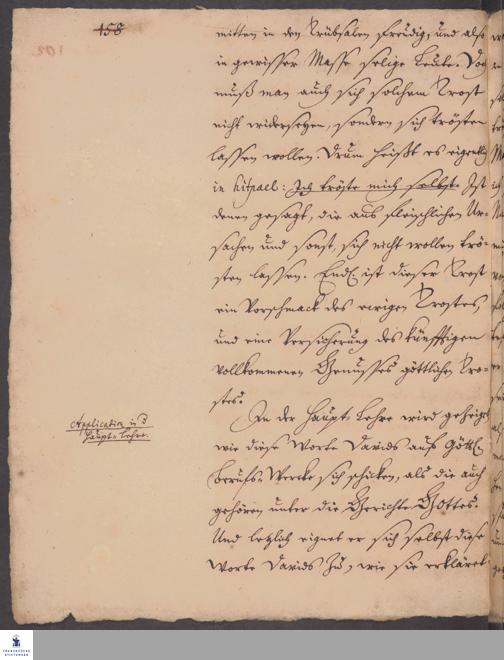 158
mitten in den Trübsalen freudig, und also
in gewisser Masse selige Leute. Doch
muß man auch sich solchem Trost
nicht widersetzen, sondern sich trösten
lassen wollen. Drum heißt es eigentlich
in hitpael: Ich tröste mich selbst. Ist
denen gesagt, die aus fleischlichen Ur-
sachen und sonst, sich nicht wollen trö-
sten lassen. Endl. ist dieser Trost
ein Vorschmack des ewigen Trostes,
und eine Versicherung des künfftigen
vollkommenen Genusses göttlichen Tro-
stes.
Application u. d
Haupt-Lehre.
In der Haupt-Lehre wird gezeiget
wie diese Worte Davids aufs Göttl.
Berufs-Wercke sich schicken, als die auch
gehören unter die Gerichte Gottes.
Und letzlich eignet er sich selbst diese
Worte Davids zu, wie sie erkläret